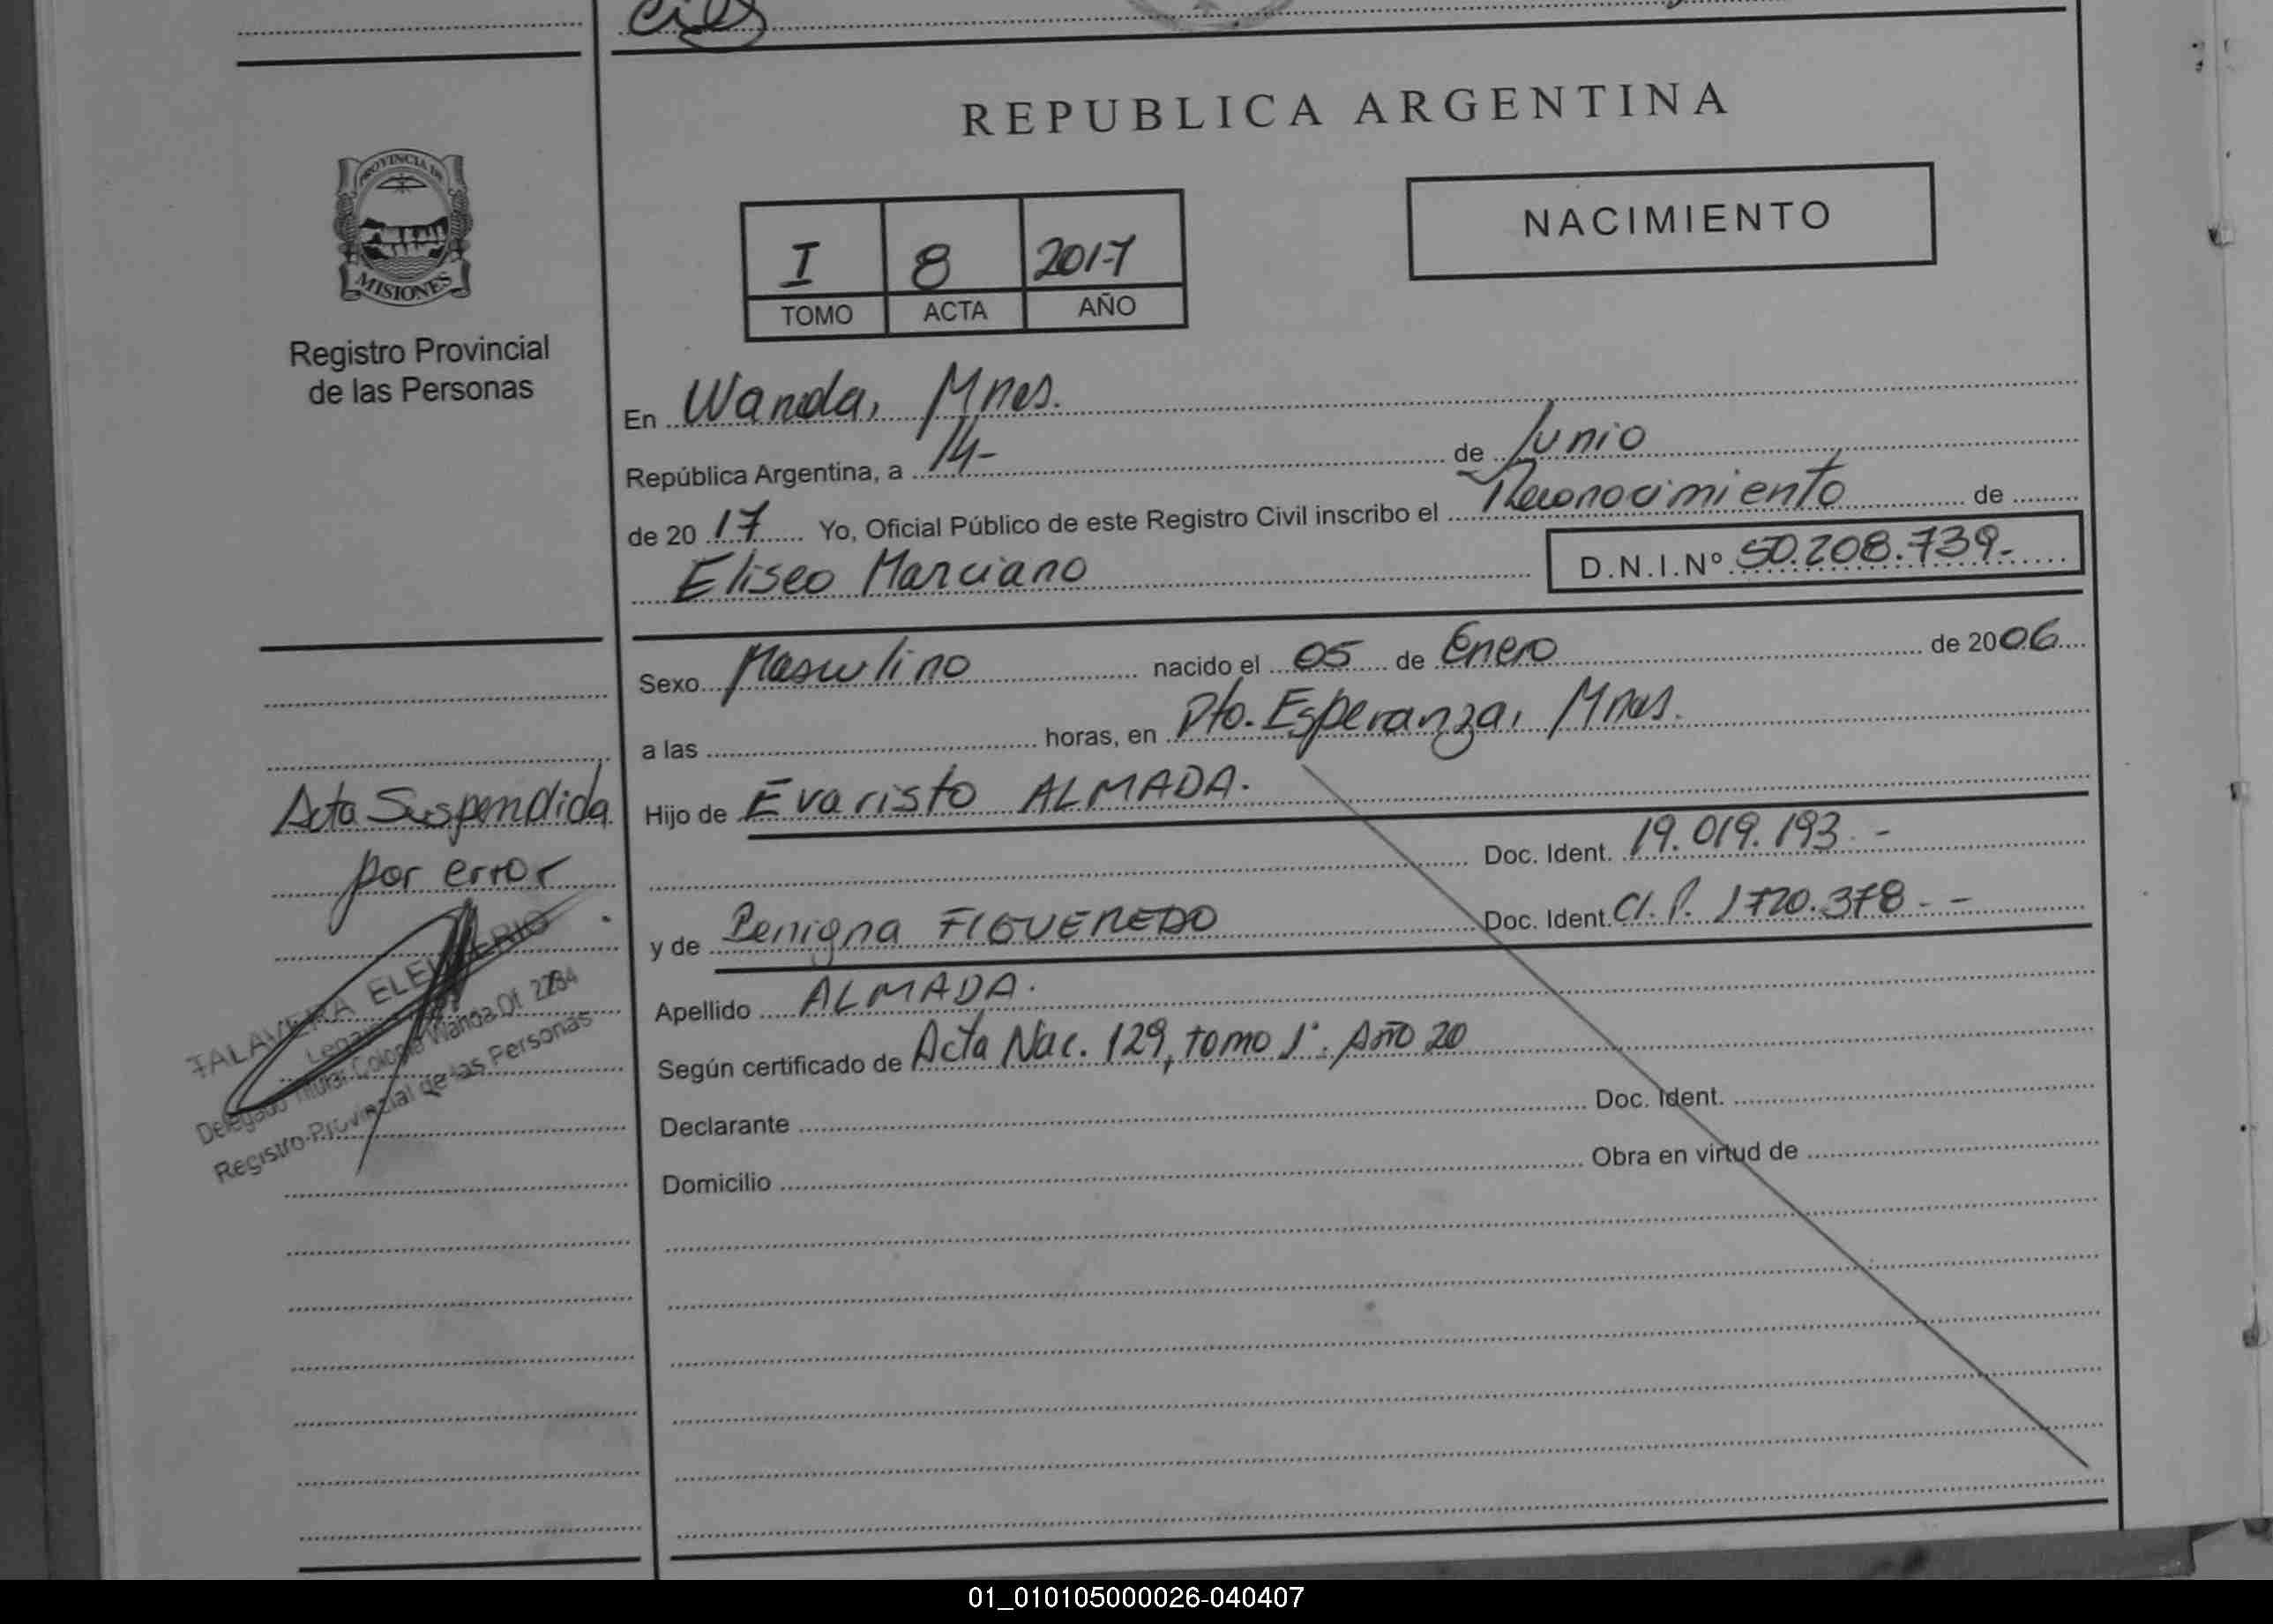 REPUBLICA ARGENTINA
PROVINCIA DE
MISIONES
Registro Provincial
de las Personas
I 8 2017
TOMO ACTA AÑO
NACIMIENTO
En Wanda, Mnes.
República Argentina, a 14- de Junio
de 20 17 Yo, Oficial Público de este Registro Civil inscribo el Reconocimiento de
Eliseo Marciano D.N.I.Nº 50.208.739-
Sexo Masculino nacido el 05 de Enero de 2006
a las horas, en Pto. Esperanza, Mnes.
Hijo de Evaristo ALMADA.
Doc. Ident. 19.019.193.-
y de Benigna FIGUEREDO Doc. Ident. CI. P. 1720.378.--
Apellido ALMADA.
Según certificado de Acta Nac. 129, tomo 1°. Año 20
Declarante Doc. Ident.
Domicilio Obra en virtud de
Acta Suspendida
por error
TALAVERA ELEUTERIO
Delegado Titular Colonia Wanda Of. 2284
Registro Provincial de las Personas
01_010105000026-040407